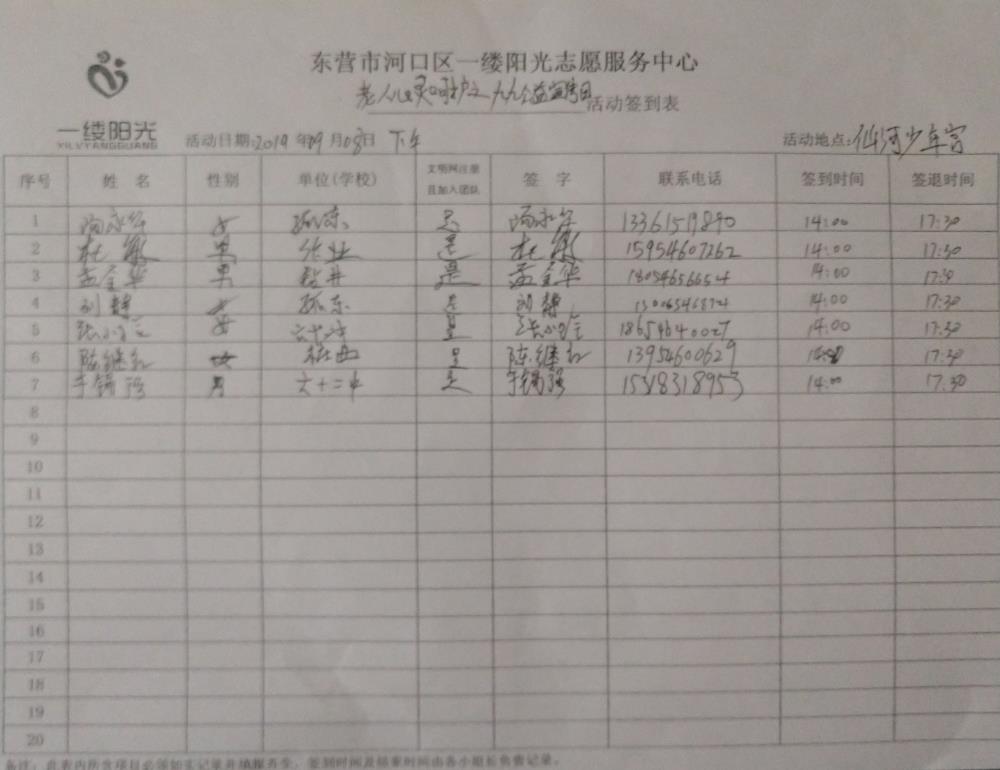 东营市河口区一缕阳光志愿服务中心
老人心灵呵护之九九公益宣传日活动签到表
一缕阳光
YILVYANGGUANG
活动日期:2019年09月08日 下午 活动地点:仙河少年宫
序号 姓名 性别 单位(学校) 文明网注册且加入团队 签字 联系电话 签到时间 签退时间
1 女 孤东 是 13361519890 14:00 17:30
2 杜 男 作业 是 杜 15954607262 14:00 17:30
3 孟金华 男 钻井 是 孟金华 18054656654 14:00 17:30
4 刘静 女 孤东 是 刘静 14:00 17:30
5 张 女 是 张 18654640027 14:00 17:30
6 陈继红 女 桩西 是 陈继红 13954600629 14:00 17:30
7 于锡强 男 六十二中 是 于锡强 15318318953 14:00 17:30
8
9
10
11
12
13
14
15
16
17
18
19
20
备注:此表内所含项目必须如实记录并填报齐全,签到时间及结束时间由各小组长负责记录。